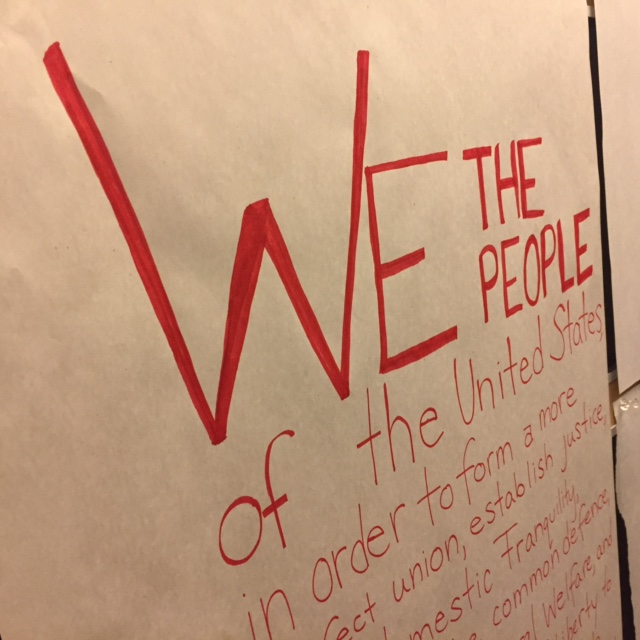 WE THE
PEOPLE
of the United States,
in order to form a more
fect union, establish justice,
mestic Tranquility,
common defence,
Welfare, and
to